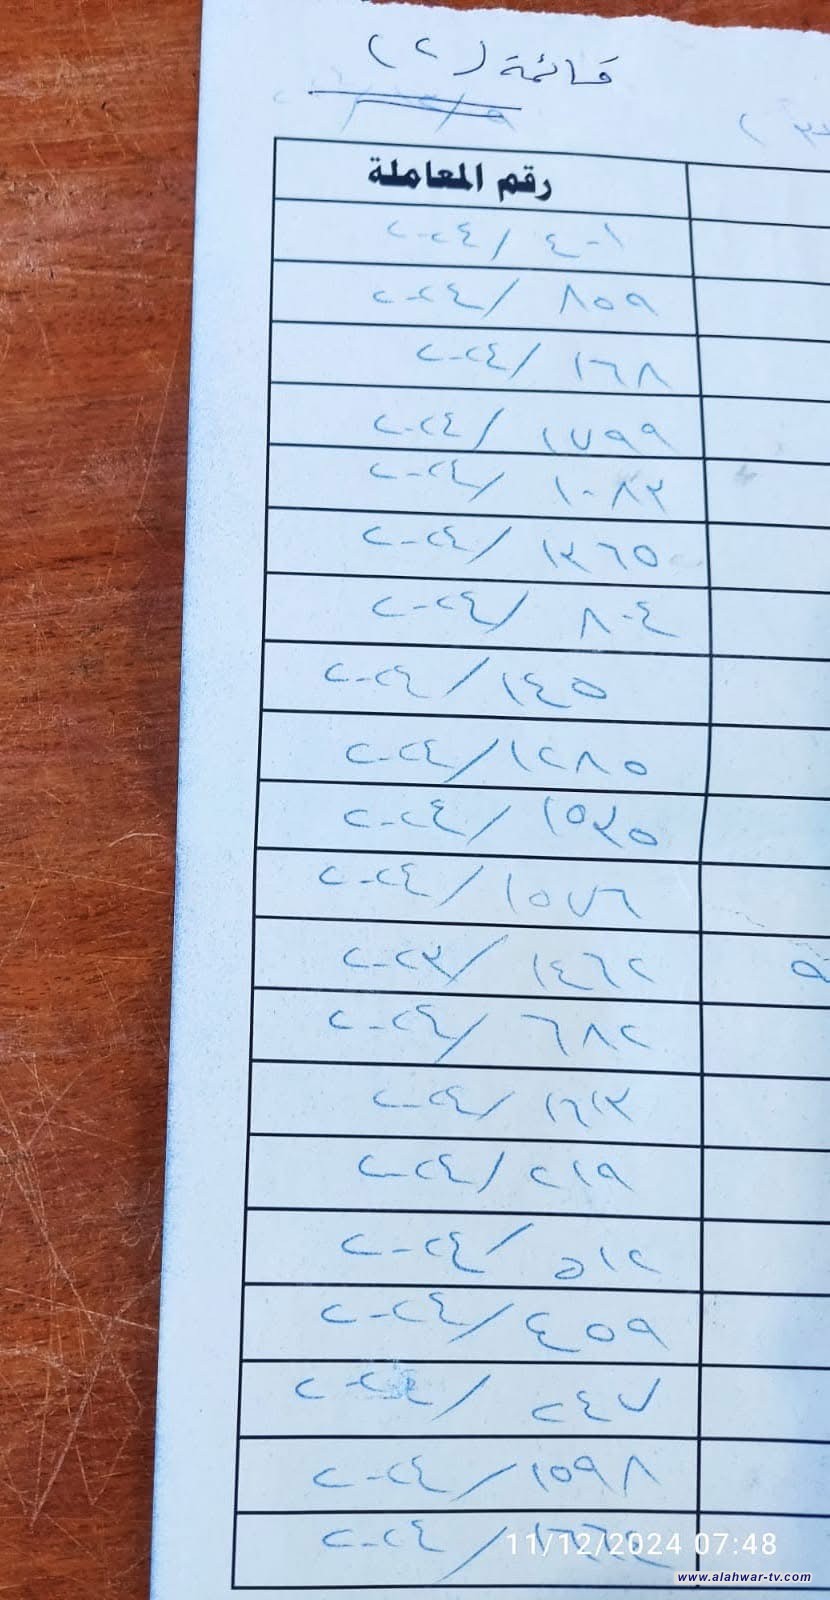 قائمة (٢)
رقم المعاملة
٤٠١ / ٢٠٢٤
٨٥٩ / ٢٠٢٤
١٦٨ / ٢٠٢٤
١٧٩٩ / ٢٠٢٤
١٠٨٣ / ٢٠٢٤
١٣٦٥ / ٢٠٢٤
٨٠٤ / ٢٠٢٤
١٤٥ / ٢٠٢٤
١٢٨٥ / ٢٠٢٤
١٥٣٥ / ٢٠٢٤
١٥٧٦ / ٢٠٢٤
١٤٦٢ / ٢٠٢٣
٦٨٢ / ٢٠٢٤
١٦١٣ / ٢٠٢٤
٢١٩ / ٢٠٢٤
٥١٢ / ٢٠٢٤
٤٥٩ / ٢٠٢٤
٢٤٧ / ٢٠٢٤
١٥٩٨ / ٢٠٢٤
/ ٢٠٢٤
11/12/2024 07:48
www.alahwar-tv.com